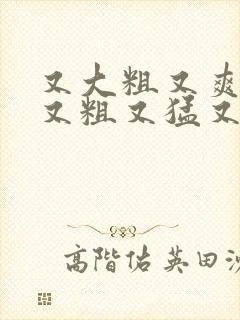 又大粗又爽
又粗又猛又
高階佑英田